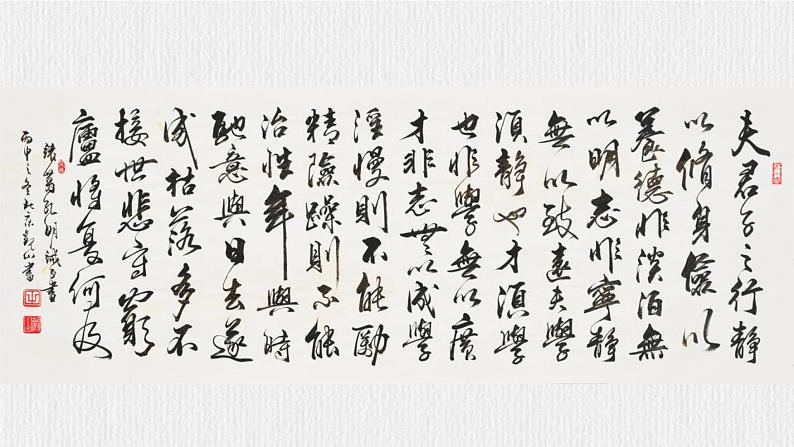 夫君子之行靜
以脩身儉以
養德非淡泊無
以明志非寧靜
無以致遠夫學
須靜也才須學
也非學無以廣
才非志無以成學
淫慢則不能勵
精險躁則不能
治性年與時
馳意與日去遂
成枯落多不
接世悲守窮
廬將復何及
葛孔明誡子書
丙申之冬京山書